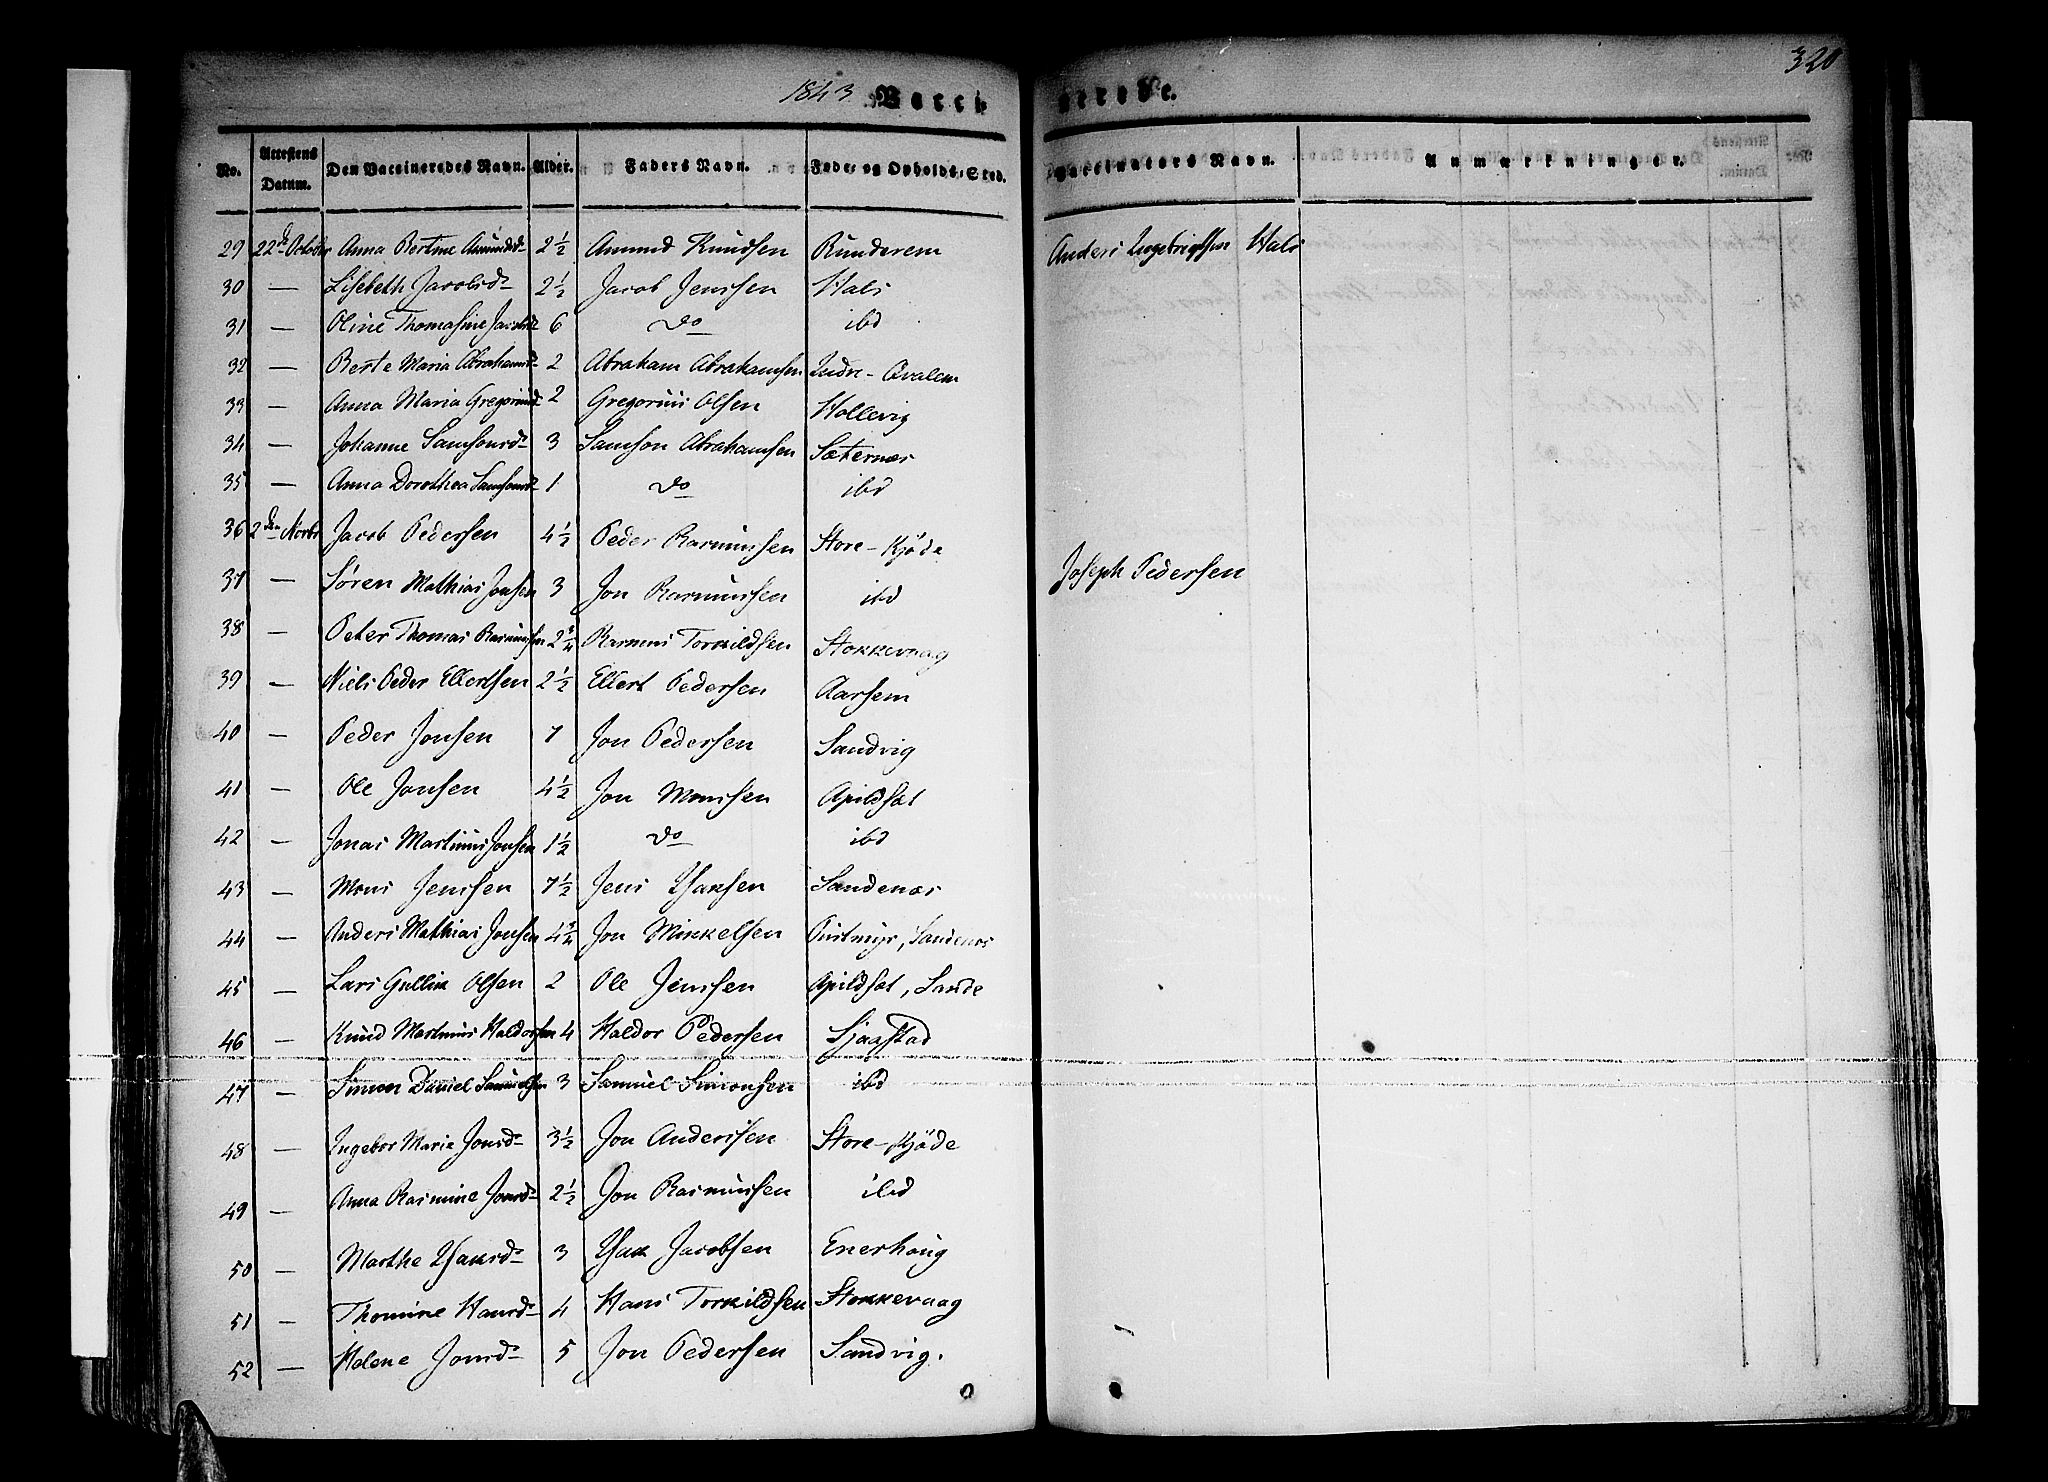 320
1843 Vaccinerede.
No. | Attestens Datum. | Den Vaccineredes Navn. | Alder. | Faders Navn. | Føde- og Opholds-Sted. | Vaccinators Navn. | Anmærkninger.
29 | 22de October | Anna Bertine Amundsdr | 2 1/2 | Amund Knudsen | Runderem | Anders Ingebrigtsen Hals
30 | — | Lisebeth Jacobsdr | 2 1/2 | Jacob Jenssen | Hals
31 | — | Oline Thomasine Jacobsdr | 6 | do | ibd
32 | — | Berte Maria Abrahamsdr | 2 | Abraham Abrahamsen | Indre-Qvalem
33 | — | Anna Maria Gregoriusdr | 2 | Gregorius Olsen | Hollevig
34 | — | Johanne Samsonsdr | 3 | Samson Abrahamsen | Sæternæs
35 | — | Anna Dorothea Samsonsdr | 1 | do | ibd
36 | 2den Novbr | Jacob Pedersen | 4 1/2 | Peder Rasmussen | Store-Kjøde | Joseph Pedersen
37 | — | Søren Mathias Jonsen | 3 | Jon Rasmussen | ibd
38 | — | Peter Thomas Rasmussen | 2 3/4 | Rasmus Torkildsen | Stokkevaag
39 | — | Niels Peder Ellertsen | 2 1/2 | Ellert Pedersen | Aarsem
40 | — | Peder Jonsen | 7 | Jon Pedersen | Sandvig
41 | — | Ole Jonsen | 4 1/2 | Jon Monsen | Apildsæt
42 | — | Jonas Martinus Jonsen | 1 1/2 | do | ibd
43 | — | Mons Jenssen | 7 1/2 | Jens Isaksen | Sandenæs
44 | — | Anders Mathias Jonsen | 4 3/4 | Jon Mikkelsen | Sandenæs
45 | — | Lars Gullik Olsen | 2 | Ole Jenssen | Apildsæt, Sande
46 | — | Knud Martinus Haldorsen | 4 | Haldor Pedersen | Sjaastad
47 | — | Simon Daniel Samuelsen | 3 | Samuel Simonsen | ibd
48 | — | Ingebor Marie Jonsdr | 3 1/2 | Jon Andersen | Store-Kjøde
49 | — | Anna Rasmine Jonsdr | 2 1/2 | Jon Rasmussen | ibd
50 | — | Marthe Isaksdr | 3 | Isak Jacobsen | Enerhoug
51 | — | Thomine Hansdr | 4 | Hans Torkildsen | Stokkevaag
52 | — | Helene Jonsdr | 5 | Jon Pedersen | Sandvig.